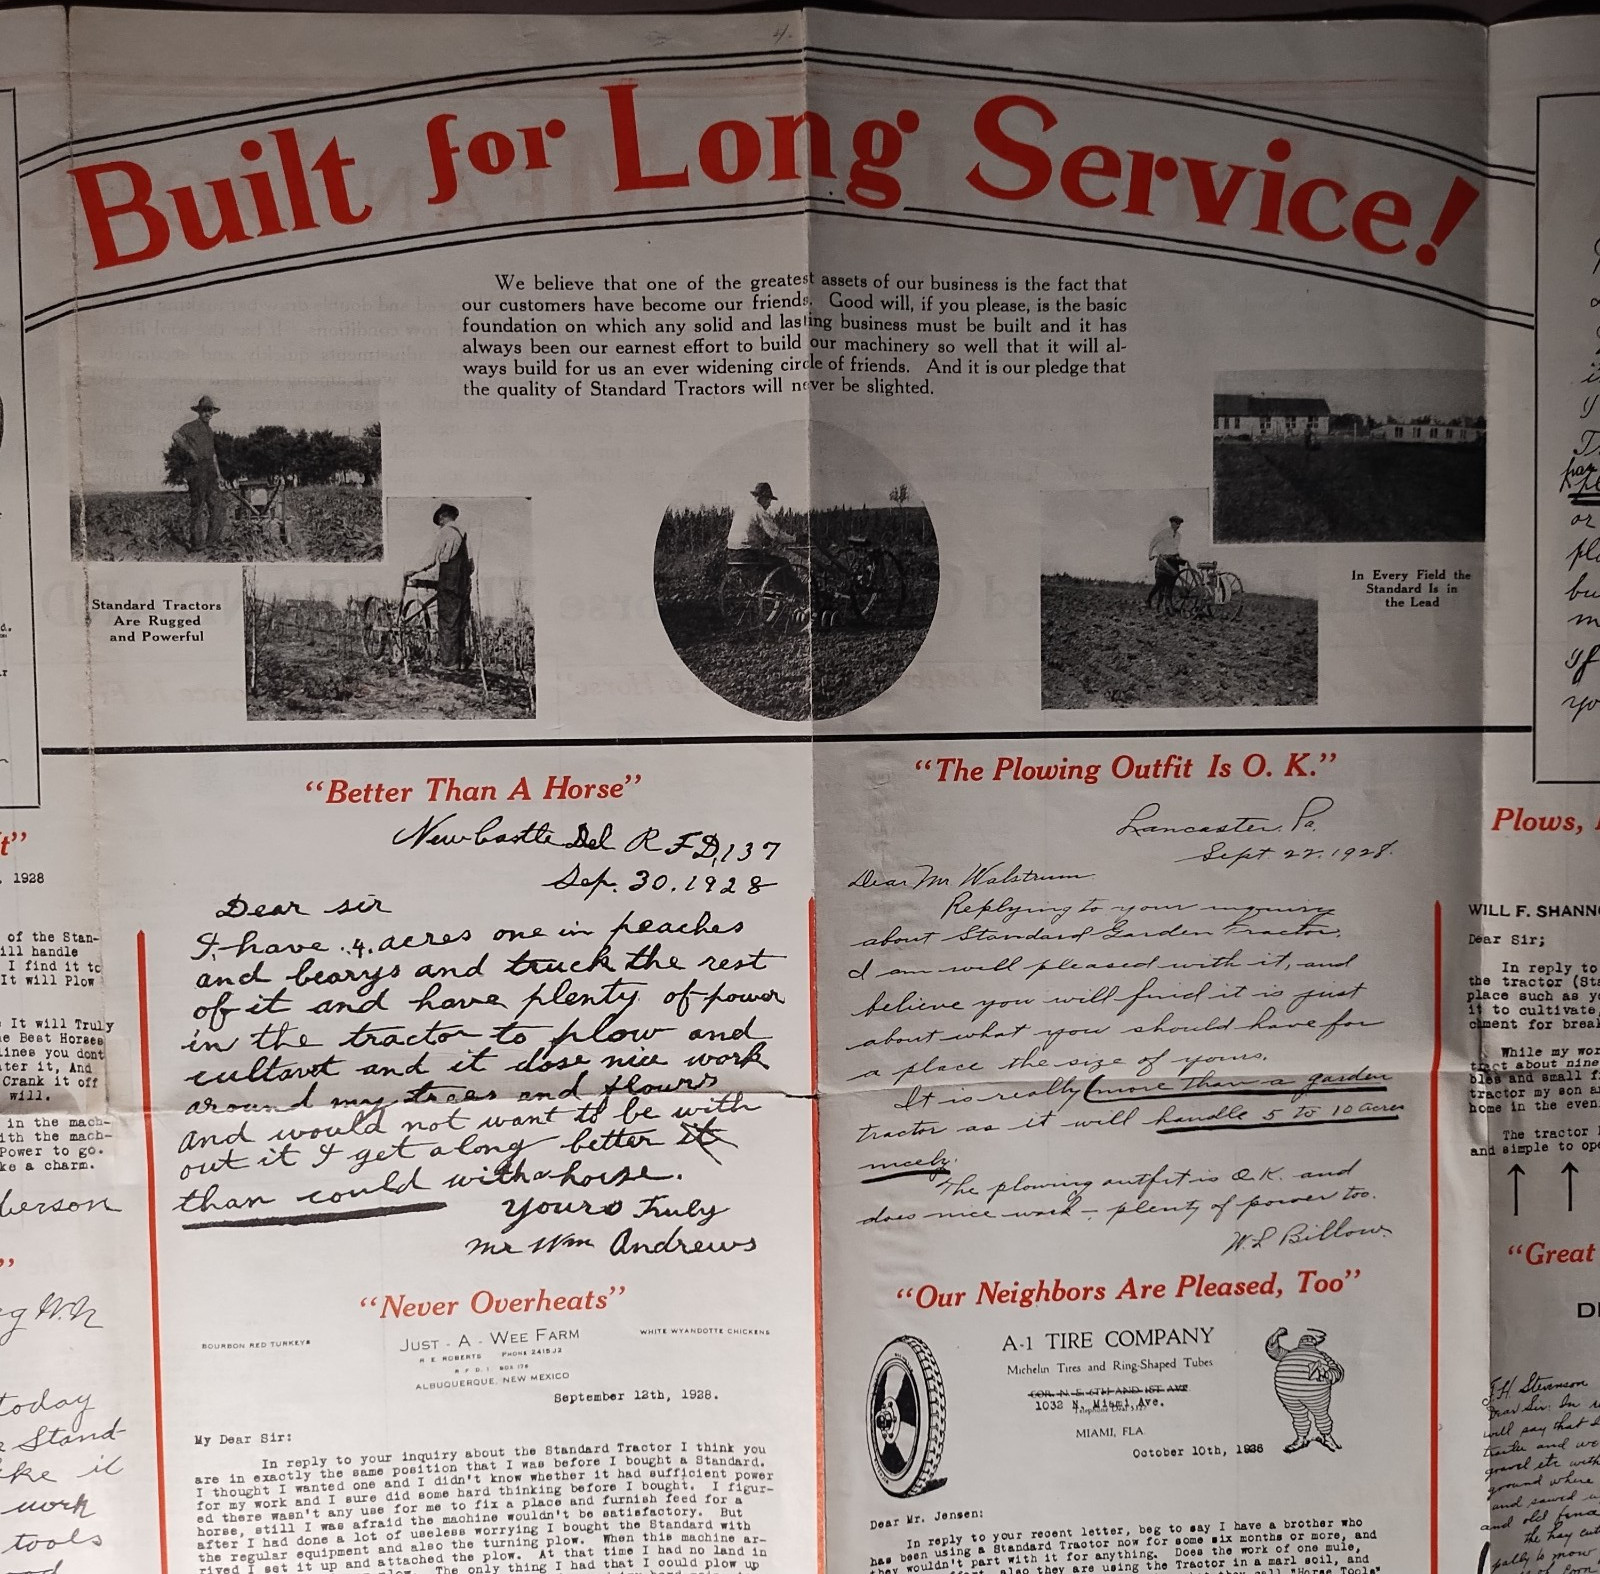 4.
Built for Long Service!
We believe that one of the greatest assets of our business is the fact that
our customers have become our friends. Good will, if you please, is the basic
foundation on which any solid and lasting business must be built and it has
always been our earnest effort to build our machinery so well that it will al-
ways build for us an ever widening circle of friends. And it is our pledge that
the quality of Standard Tractors will never be slighted.
Standard Tractors
Are Rugged
and Powerful
In Every Field the
Standard Is in
the Lead
t"
. 1928
of the Stan-
ill handle
I find it to
It will Plow
It will Truly
e Best Horses
lines you dont
ter it, And
Crank it off
will.
in the mach-
ith the mach-
Power to go.
ke a charm.
berson
"
today
Stand
ke it
work
tools
"Better Than A Horse"
New Castle Del R F D, 137
Sep. 30. 1928
Dear sir
I have .4. acres one in peaches
and bearys and truck the rest
of it and have plenty of power
in the tractor to plow and
cultavt and it dose nice work
around my trees and flours
and would not want to be with
out it I get along better it
than could with a horse.
Yours Truly
Mr Wm Andrews
"Never Overheats"
BOURBON RED TURKEYS
JUST - A - WEE FARM
WHITE WYANDOTTE CHICKENS
R E ROBERTS PHONE 2415J2
R F D 1 BOX 178
ALBUQUERQUE, NEW MEXICO
September 12th, 1928.
My Dear Sir:
In reply to your inquiry about the Standard Tractor I think you
are in exactly the same position that I was before I bought a Standard.
I thought I wanted one and I didn't know whether it had sufficient power
for my work and I sure did some hard thinking before I bought. I figur-
ed there wasn't any use for me to fix a place and furnish feed for a
horse, still I was afraid the machine wouldn't be satisfactory. But
after I had done a lot of useless worrying I bought the Standard with
the regular equipment and also the turning plow. When this machine ar-
rived I set it up and attached the plow. At that time I had no land in
The only thing I had that I could plow up
"The Plowing Outfit Is O. K."
Lancaster. Pa.
Sept 27. 1928.
Dear Mr. Walstrum.
Replying to your inquiry
about Standard Garden Tractor.
I am well pleased with it, and
believe you will find it is just
about what you should have for
a place the size of yours.
It is really (more than a garden
tractor as it will handle 5 to 10 acres
nicely.
The plowing outfit is O.K. and
does nice work - plenty of power too.
W. L Billow.
"Our Neighbors Are Pleased, Too"
A-1 TIRE COMPANY
Michelin Tires and Ring-Shaped Tubes
COR. N. E. 6TH AND 1ST AVE
1032 N. Miami Ave.
MIAMI, FLA.
October 10th, 1928
Dear Mr. Jensen:
In reply to your recent letter, beg to say I have a brother who
has been using a Standard Tractor now for some six months or more, and
they wouldn't part with it for anything. Does the work of one mule,
also they are using the Tractor in a marl soil, and
they call "Horse Tools"
or
you
Plows,
WILL F. SHANNO
Dear Sir;
In reply to
the tractor (Sta
place such as yo
it to cultivate,
chment for break
While my wor
tract about nine
bles and small f
tractor my son a
home in the even
The tractor
and simple to ope
"Great
J.H. Stevenson
Dear Sir: In
will say that
and
gravel etc with
ground where
and sawed
and old
the hay cut
to mow